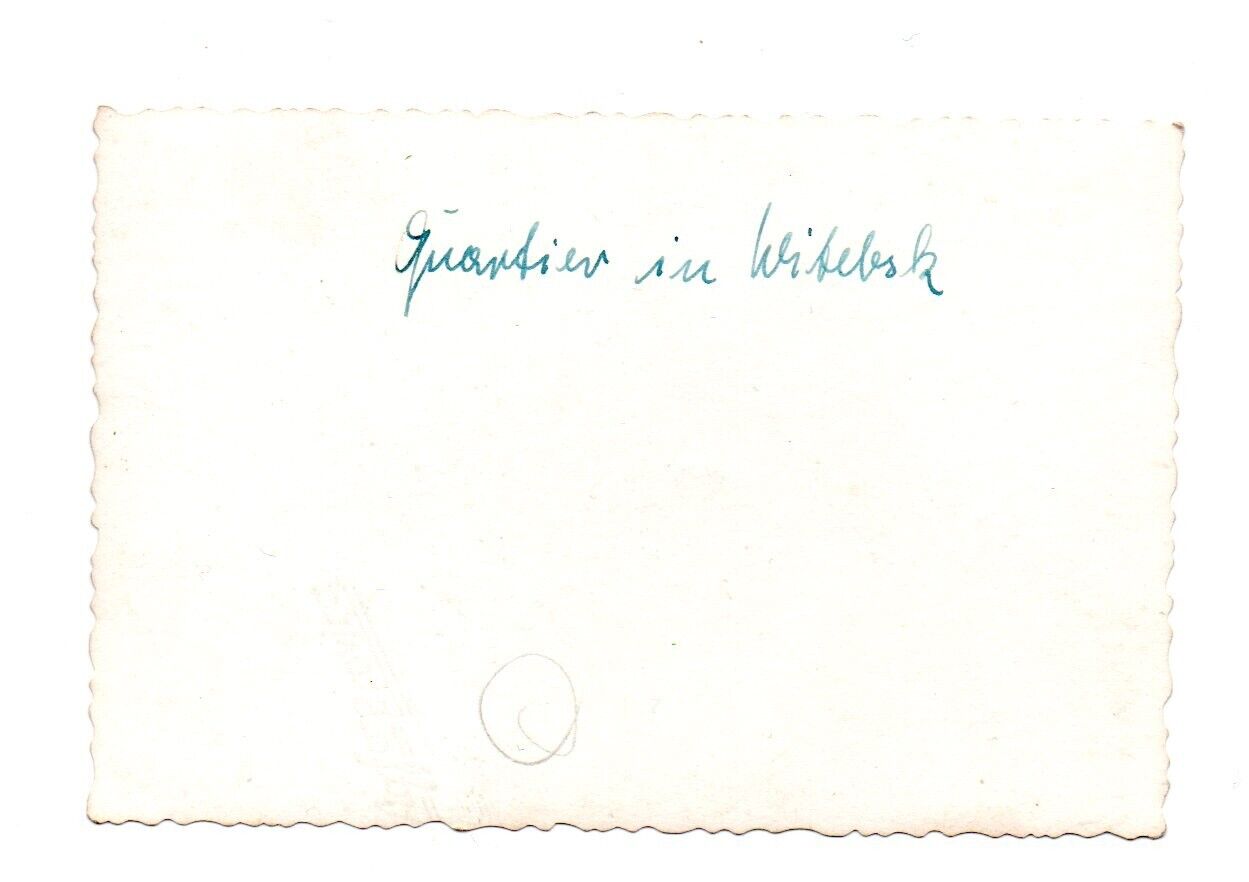 Quartier in Witebsk